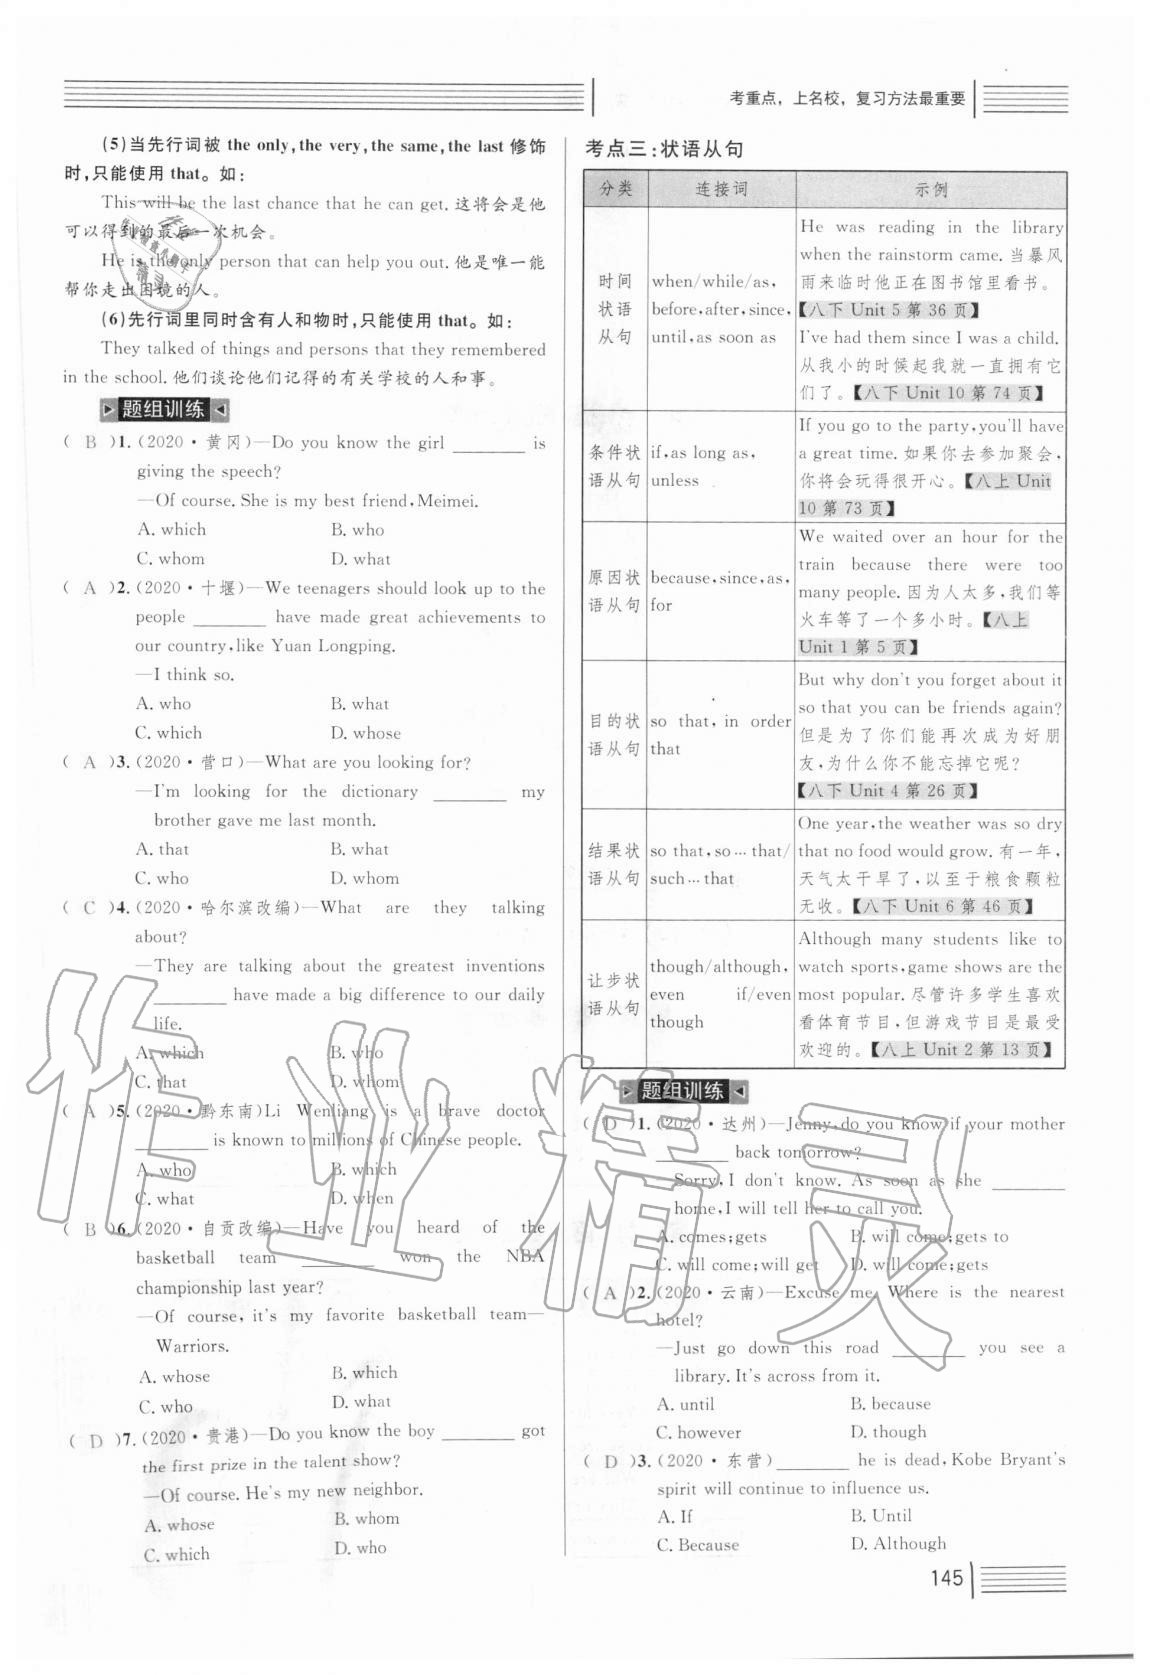 考重点，上名校，复习方法最重要
(5)当先行词被 the only,the very,the same,the last 修饰
时,只能使用 that。如：
This will be the last chance that he can get.这将会是他
可以得到的最后一次机会。
He is the only person that can help you out.他是唯一能
帮你走出困境的人。
(6)先行词里同时含有人和物时,只能使用 that。如：
They talked of things and persons that they remembered
in the school.他们谈论他们记得的有关学校的人和事。
题组训练
( B )1.(2020·黄冈)—Do you know the girl ________ is
giving the speech?
—Of course. She is my best friend,Meimei.
A. which B. who
C. whom D. what
( A )2.(2020·十堰)—We teenagers should look up to the
people ________ have made great achievements to
our country,like Yuan Longping.
—I think so.
A. who B. what
C. which D. whose
( A )3.(2020·营口)—What are you looking for?
—I'm looking for the dictionary ________ my
brother gave me last month.
A. that B. what
C. who D. whom
( C )4.(2020·哈尔滨改编)—What are they talking
about?
—They are talking about the greatest inventions
________ have made a big difference to our daily
life.
A. which B. who
C. that D. whom
( A )5.(2020·黔东南)Li Wenliang is a brave doctor
________ is known to millions of Chinese people.
A. who B. which
C. what D. when
( B )6.(2020·自贡改编)—Have you heard of the
basketball team ________ won the NBA
championship last year?
—Of course, it's my favorite basketball team—
Warriors.
A. whose B. which
C. who D. what
( D )7.(2020·贵港)—Do you know the boy ________ got
the first prize in the talent show?
—Of course. He's my new neighbor.
A. whose B. whom
C. which D. who
考点三：状语从句
分类 连接词 示例
时间
状语
从句
when/while/as,
before,after,since,
until,as soon as
He was reading in the library
when the rainstorm came.当暴风
雨来临时他正在图书馆里看书。
【八下 Unit 5 第 36 页】
I've had them since I was a child.
从我小的时候起我就一直拥有它
们了。【八下 Unit 10 第 74 页】
条件状
语从句
if,as long as,
unless
If you go to the party,you'll have
a great time.如果你去参加聚会,
你将会玩得很开心。【八上 Unit
10 第 73 页】
原因状
语从句
because,since,as,
for
We waited over an hour for the
train because there were too
many people.因为人太多,我们等
火车等了一个多小时。【八上
Unit 1 第 5 页】
目的状
语从句
so that,in order
that
But why don't you forget about it
so that you can be friends again?
但是为了你们能再次成为好朋
友,为什么你不能忘掉它呢?
【八下 Unit 4 第 26 页】
结果状
语从句
so that,so…that/
such…that
One year,the weather was so dry
that no food would grow.有一年,
天气太干旱了,以至于粮食颗粒
无收。【八下 Unit 6 第 46 页】
让步状
语从句
though/although,
even if/even
though
Although many students like to
watch sports,game shows are the
most popular.尽管许多学生喜欢
看体育节目,但游戏节目是最受
欢迎的。【八上 Unit 2 第 13 页】
题组训练
( D )1.(2020·达州)—Jenny,do you know if your mother
________ back tomorrow?
—Sorry,I don't know. As soon as she ________
home,I will tell her to call you.
A. comes;gets B. will come;gets to
C. will come;will get D. will come;gets
( A )2.(2020·云南)—Excuse me. Where is the nearest
hotel?
—Just go down this road ________ you see a
library. It's across from it.
A. until B. because
C. however D. though
( D )3.(2020·东营)________ he is dead,Kobe Bryant's
spirit will continue to influence us.
A. If B. Until
C. Because D. Although
145
作业精灵